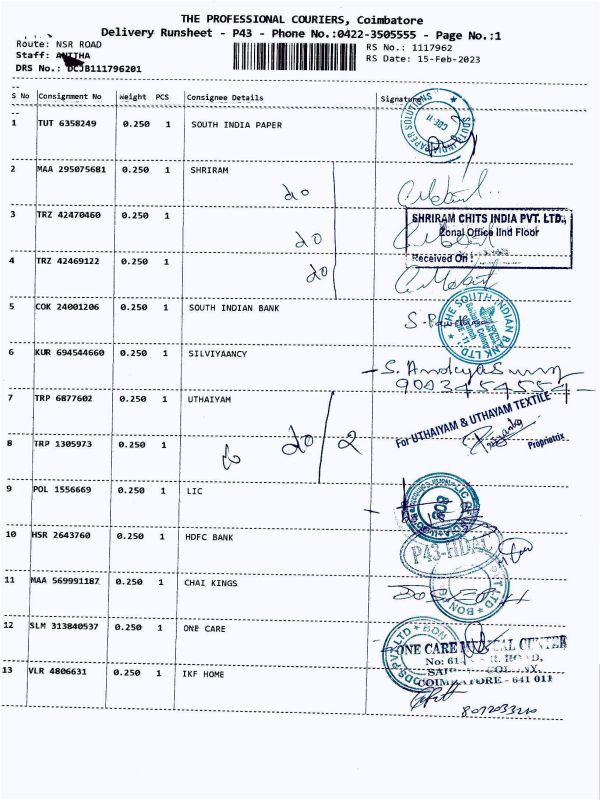 THE PROFESSIONAL COURIERS, Coimbatore
Delivery Runsheet - P43 - Phone No.:0422-3505555 - Page No.:1
Route: NSR ROAD RS No.: 1117962
Staff: ANITHA RS Date: 15-Feb-2023
DRS No.: DCJB111796201
S No Consignment No Weight PCS Consignee Details Signature
1 TUT 6358249 0.250 1 SOUTH INDIA PAPER
2 MAA 295075681 0.250 1 SHRIRAM
do
3 TRZ 42470460 0.250 1 SHRIRAM CHITS INDIA PVT. LTD.,
Zonal Office IInd Floor
do
4 TRZ 42469122 0.250 1 Received On :
do
5 COK 24001206 0.250 1 SOUTH INDIAN BANK
THE SOUTH INDIAN BANK LTD
6 KUR 694544660 0.250 1 SILVIYAANCY
9003454554
7 TRP 6877602 0.250 1 UTHAIYAM
For UTHAIYAM & UTHAYAM TEXTILE
Proprietrix
8 TRP 1305973 0.250 1 do / 2
9 POL 1556669 0.250 1 LIC
10 HSR 2643760 0.250 1 HDFC BANK
P43-HDAC
11 MAA 569991187 0.250 1 CHAI KINGS
12 SLM 313840537 0.250 1 ONE CARE
ONE CARE CENTER
COIMBATORE - 641 011
13 VLR 4806631 0.250 1 IKF HOME